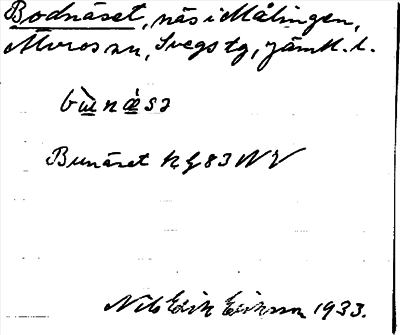 Bodnäset, näs i Målingen,
Älvros sn, Svegs tg, Jämtl. l.
bù näsə
Bunäset kg 83 NV
Nils Erik Eriksson 1933.